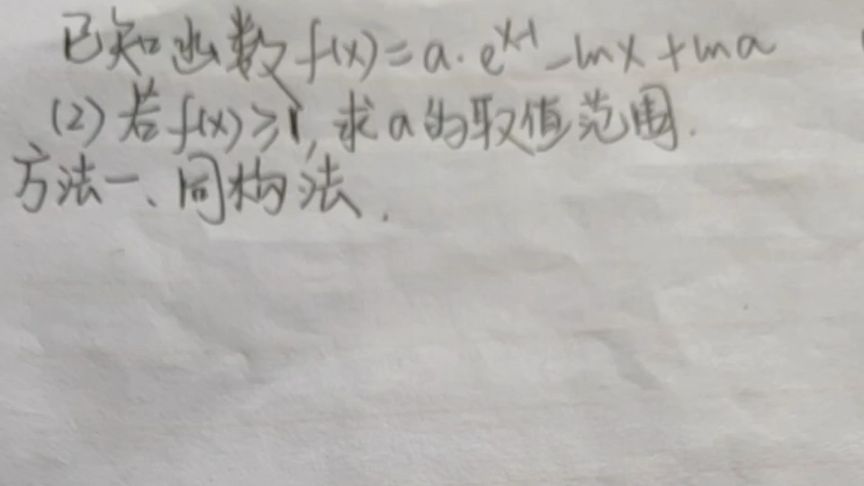 已知函数f(x)=a·e^{x-1}-lnx+lna
(2)若f(x)≥1,求a的取值范围.
方法一、同构法.